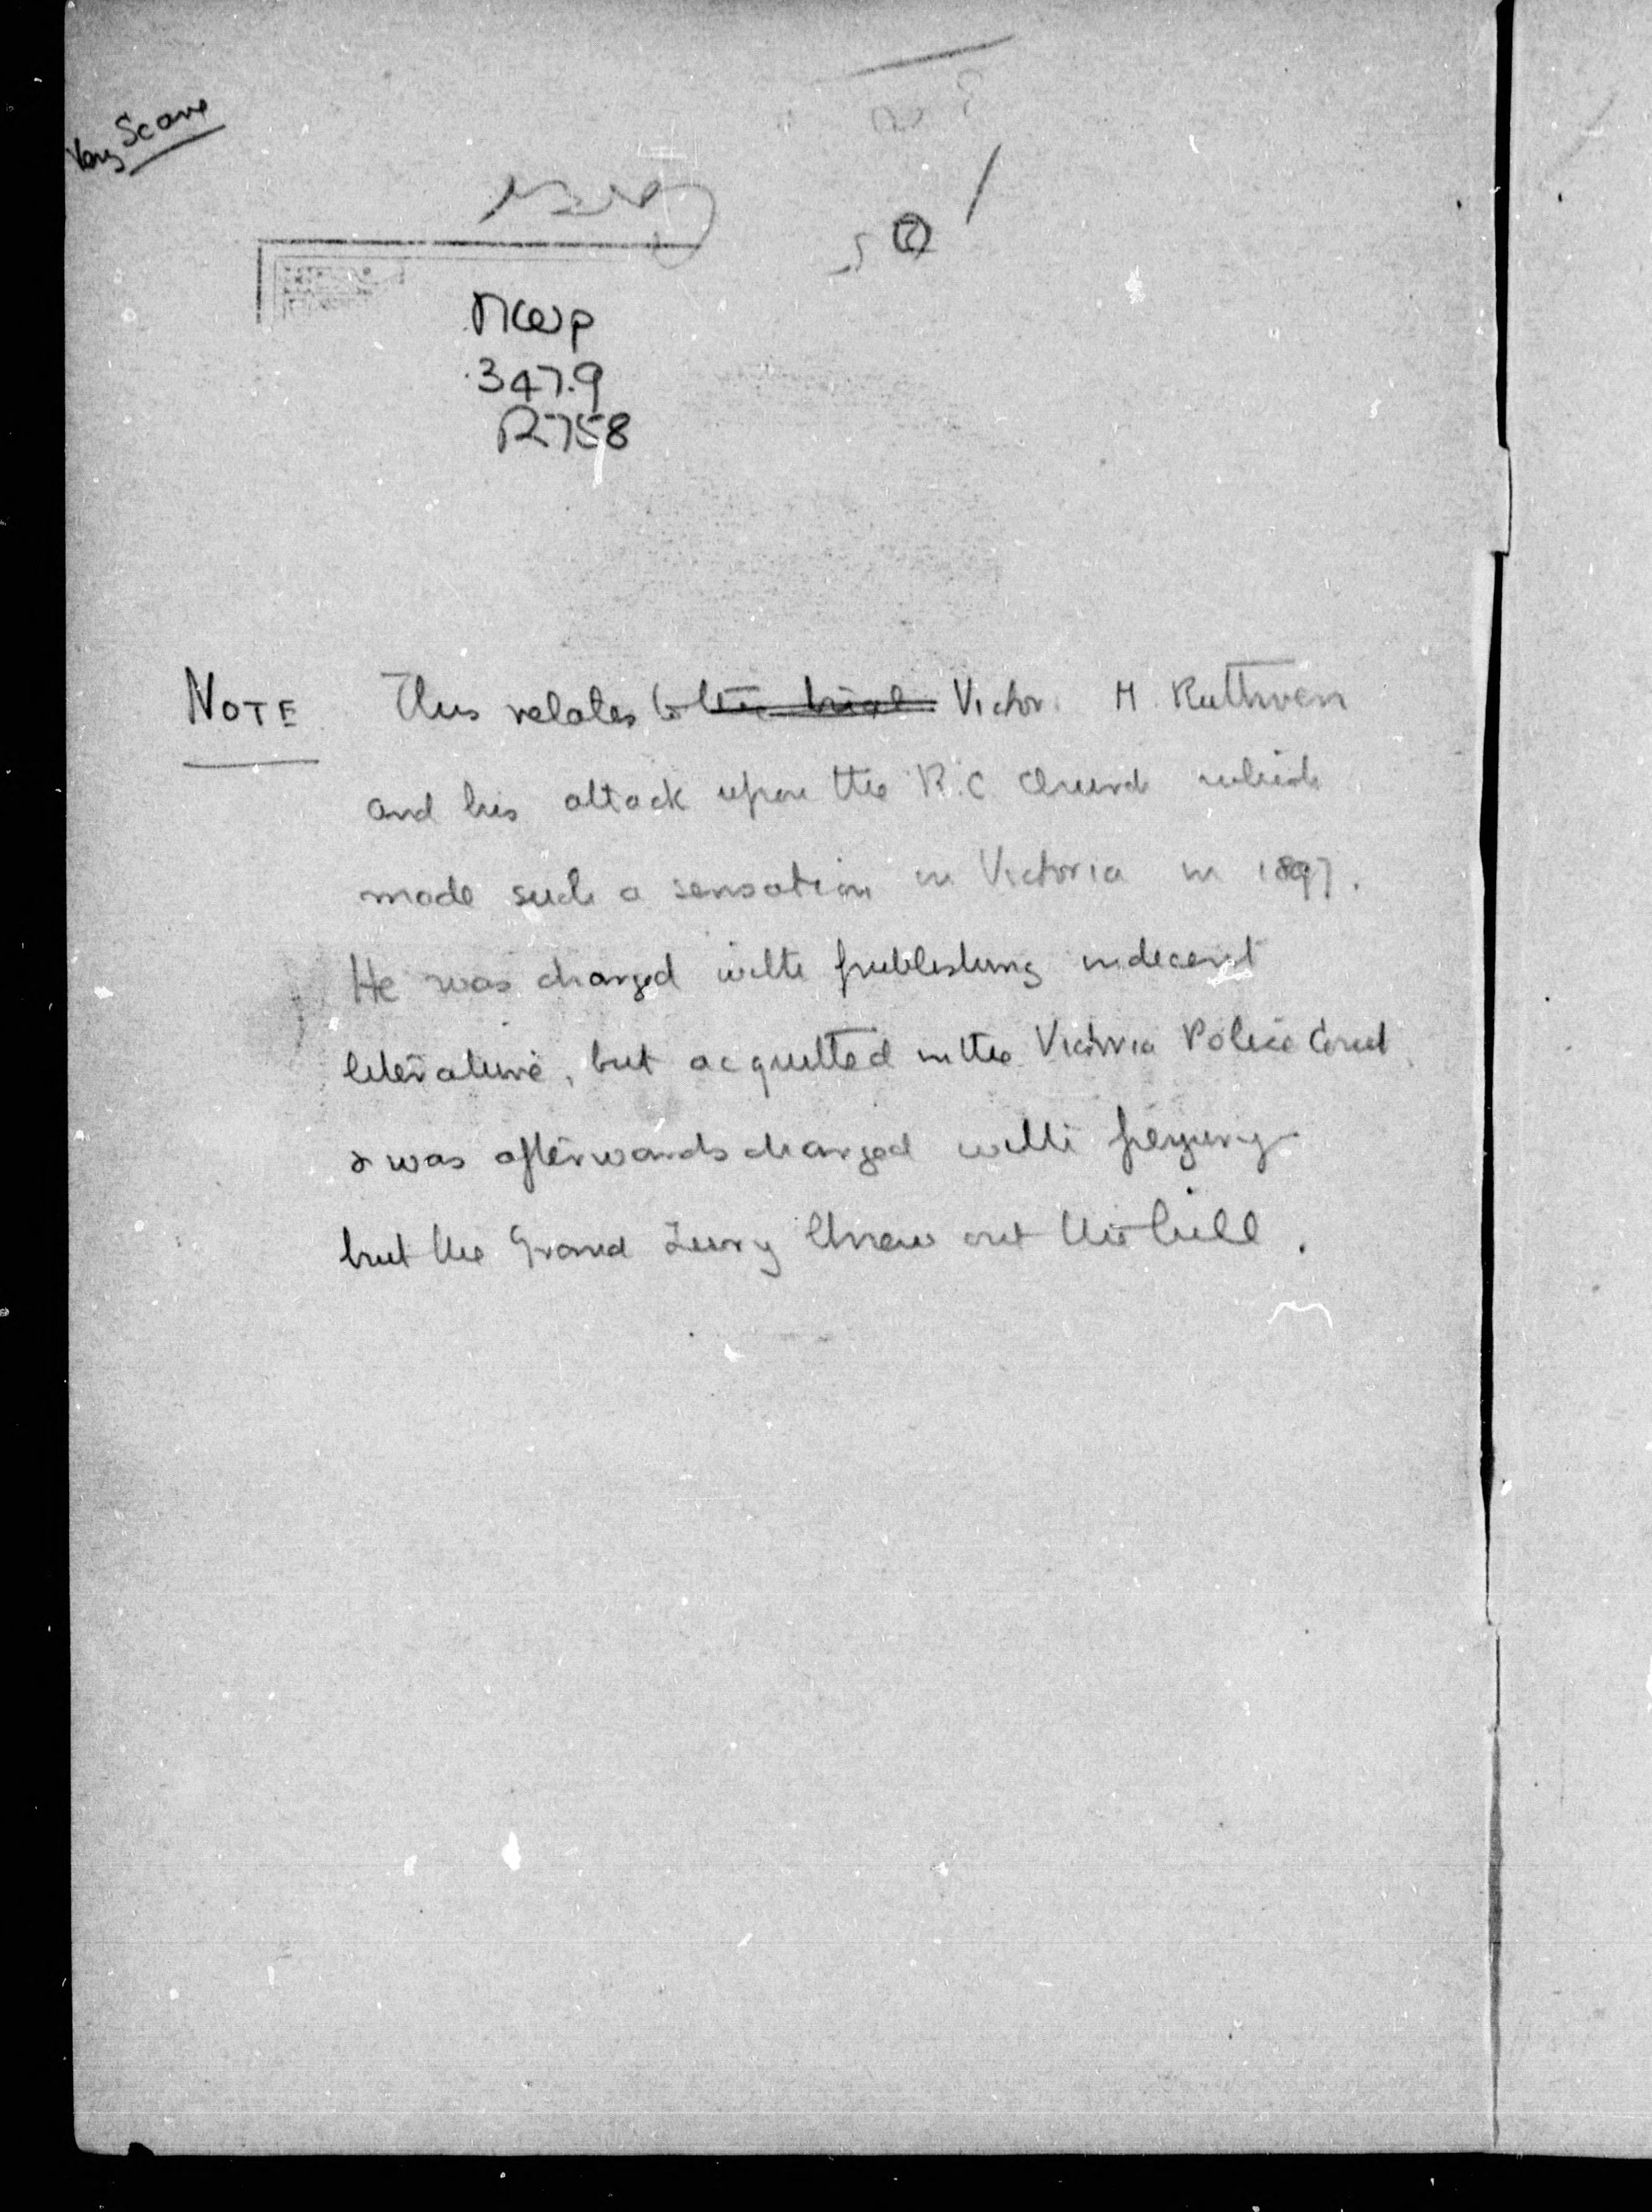 Very Scarce
NWp
347.9
R758
NOTE This relates to the trial Victor M. Ruthven
and his attack upon the R.C. Church which
made such a sensation in Victoria in 1897.
He was charged with publishing indecent
literature, but acquitted in the Victoria Police Court
& was afterwards charged with perjury
but the Grand Jury threw out the bill.